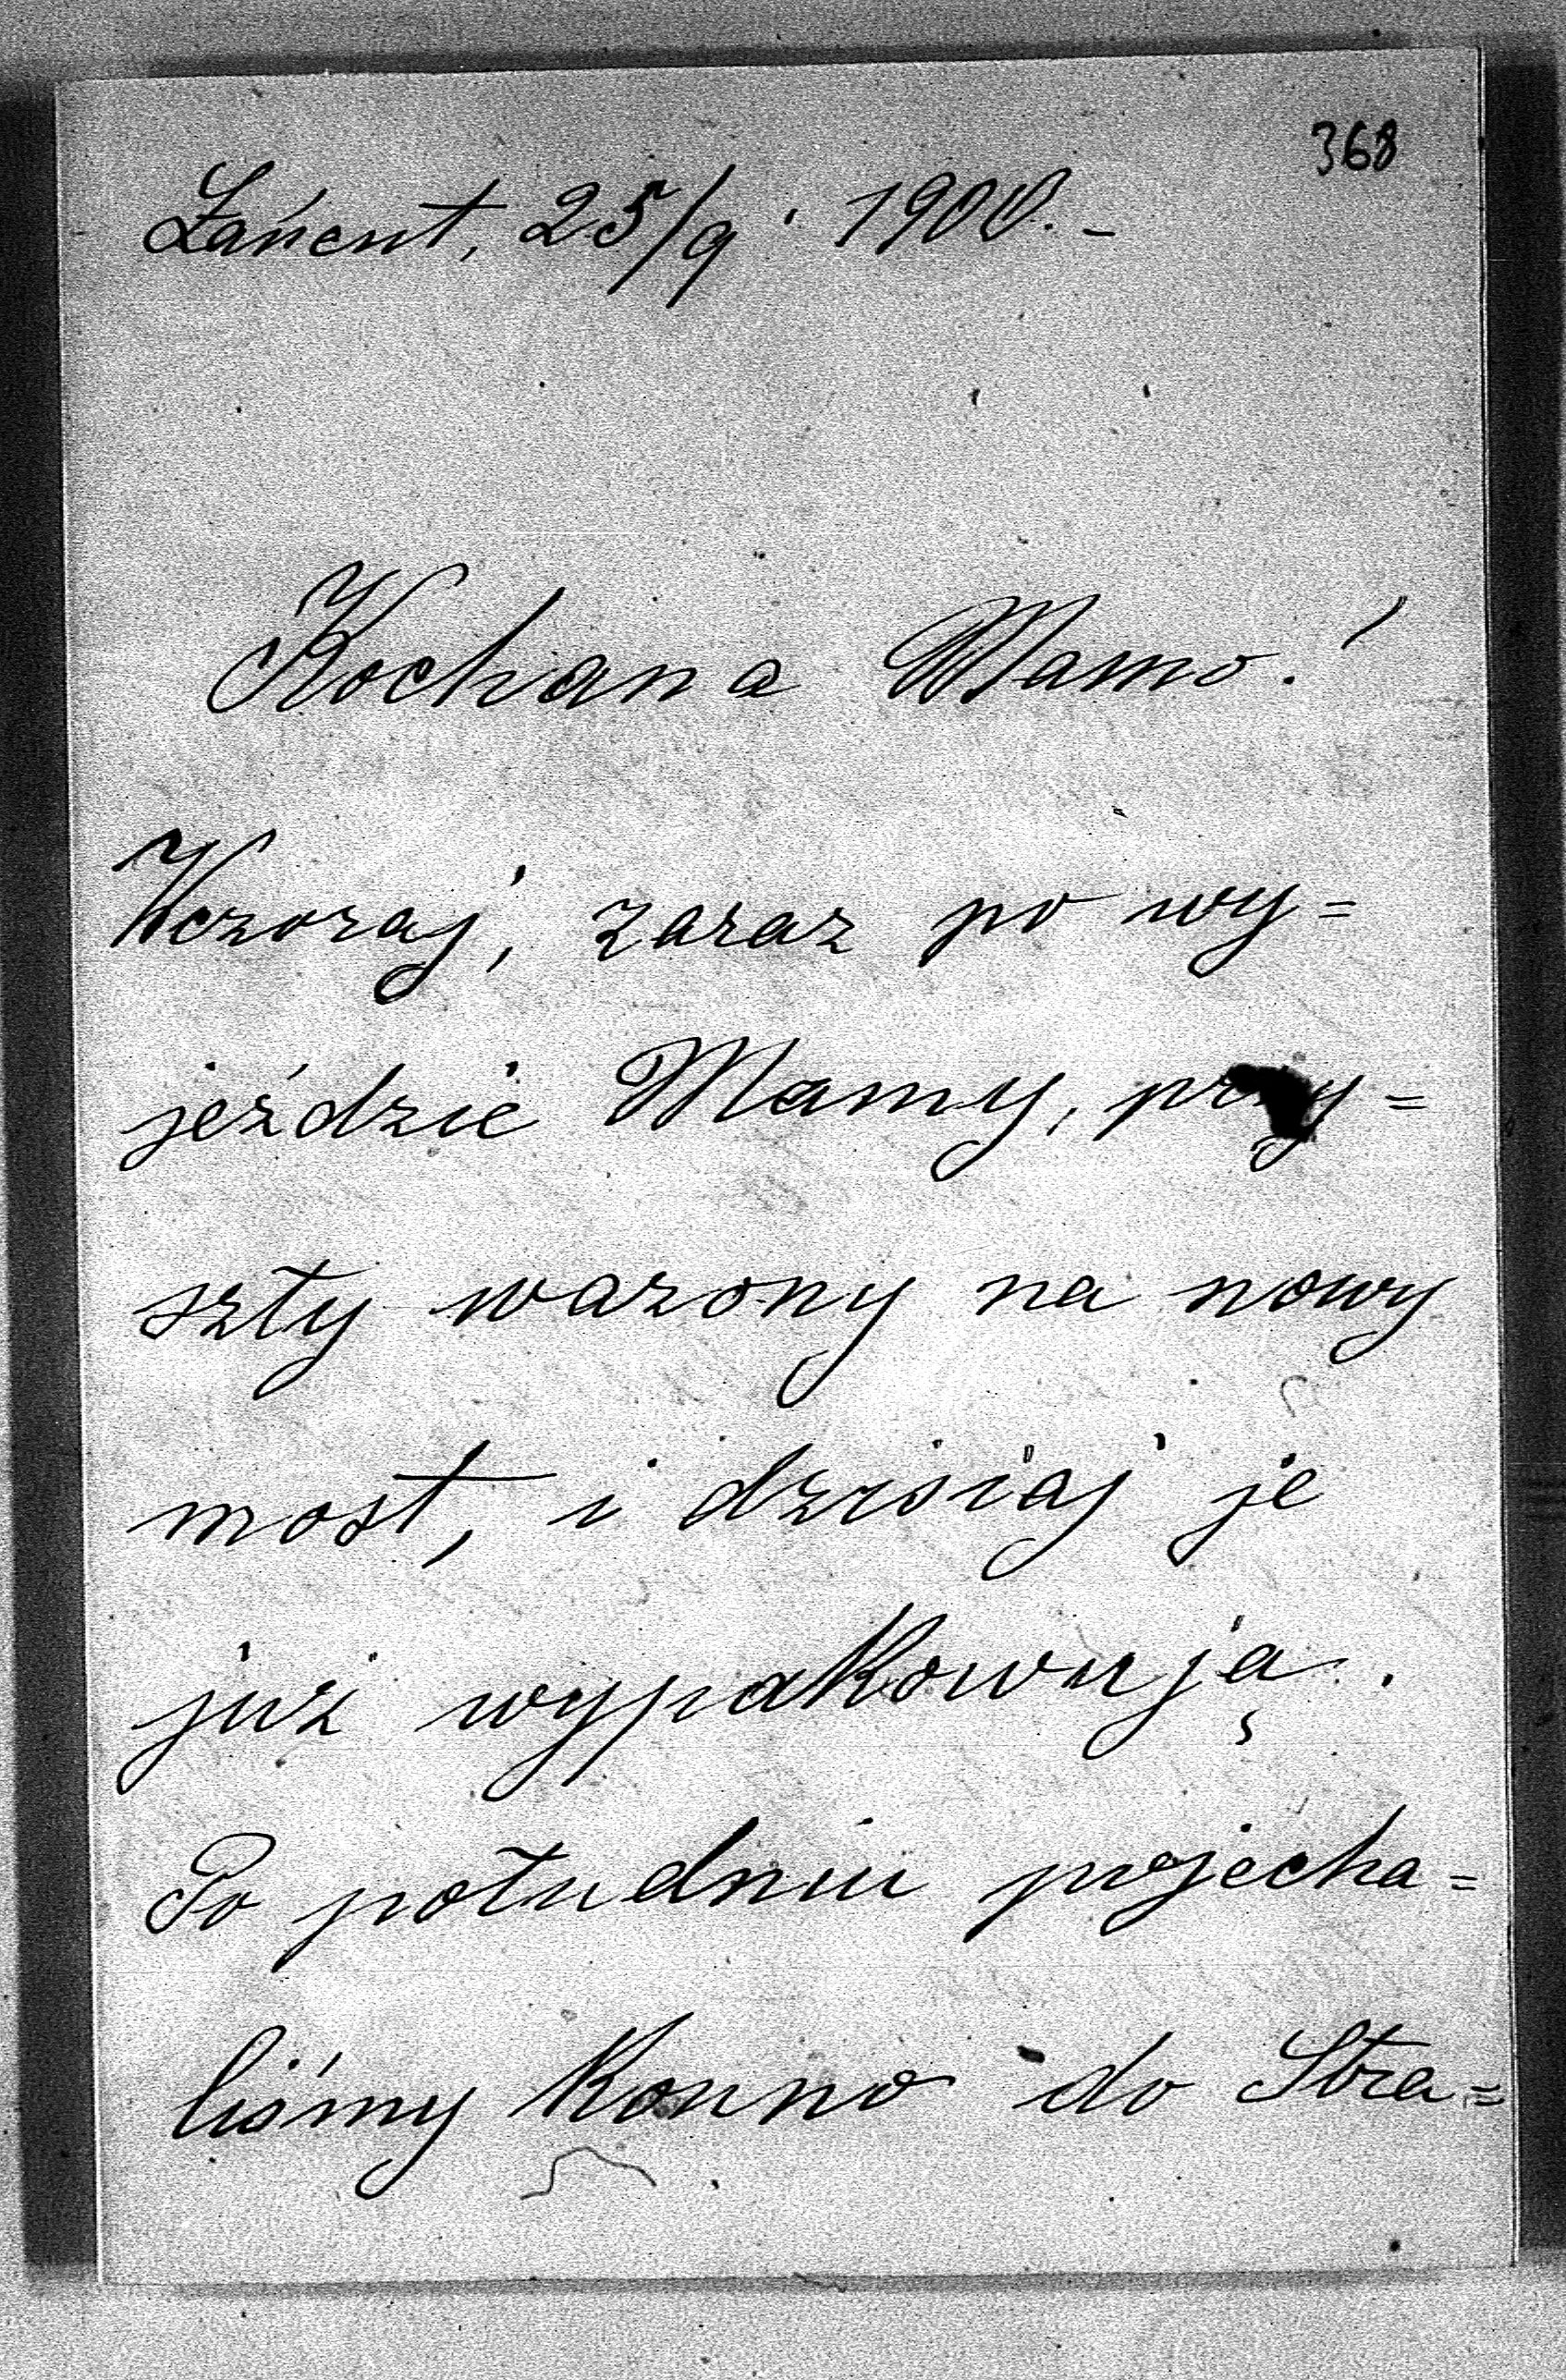 368
Łańcut, 25/9. 1900.-
Kochana Mamo!
Wczoraj, zaraz po wy=
jeździe Mamy, przy=
szły wazony na nowy
most, i dzisiaj je
już wypakowują.
Po południu pojecha=
liśmy konno do Stra=